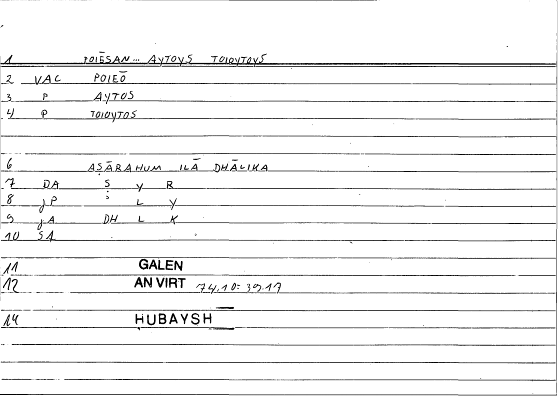 1 POIĒSAN... AYTOYS TOIOYTOYS
2 VAC POIEŌ
3 P AYTOS
4 P TOIOYTOS
6 AṢĀRAHUM ILĀ DHĀLIKA
7 DA Ṣ Y R
8 JP ʾ L Y
9 JA DH L K
10 SA
11 GALEN
12 AN VIRT 74,10: 39,17
14 HUBAYSH